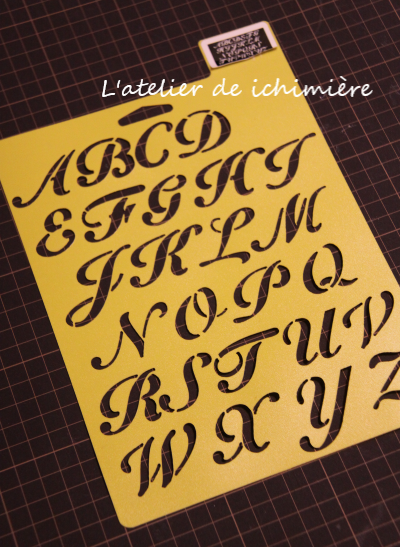 L'atelier de ichimière
ABCD
EFGHI
JKLM
NOPQ
RSTUV
WXYZ